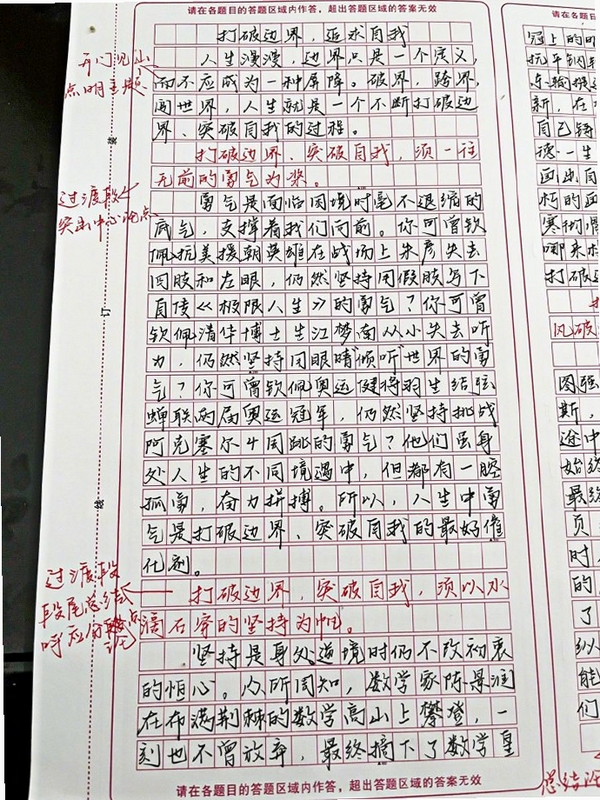 请在各题目的答题区域内作答，超出答题区域的答案无效
打破边界，追求自我
人生漫漫，边界只是一个定义，
而不应成为一种屏障。破界，跨界，
闯世界，人生就是一个不断打破边
界、突破自我的过程。
打破边界、突破自我，须一往
无前的勇气为桨。
勇气是面临困境时毫不退缩的
底气，支撑着我们向前。你可曾钦
佩抗美援朝英雄在战场上朱彦失去
四肢和左眼，仍然坚持用假肢写下
自传《极限人生》的勇气？你可曾
钦佩清华博士生江梦南从小失去听
力，仍然坚持用眼睛"倾听"世界的勇
气？你可曾钦佩奥运健将羽生结弦
蝉联两届奥运冠军，仍然坚持挑战
阿克塞尔4周跳的勇气？他们虽身
处人生的不同境遇中，但都有一腔
孤勇，奋力拼搏。所以，人生中勇
气是打破边界、突破自我的最好催
化剂。
打破边界，突破自我，须以水
滴石穿的坚持为帆。
坚持是身处逆境时仍不改初衷
的恒心。众所周知，数学家陈景润
在布满荆棘的数学高山上攀登，一
刻也不曾放弃，最终摘下了数学皇
请在各题目的答题区域内作答，超出答题区域的答案无效
开门见山
点明主题
过渡段
突出中心论点
过渡段
段尾总结
呼应分论点
装
订
线
请在各题目的答
冠上的明
新，在
自己铸
德一生
画出自
朽的画
寒彻骨
哪来木
打破边
风破
图强
斯，
途中
始终
最终
页
时，
的
了
纵
能
们
总结证